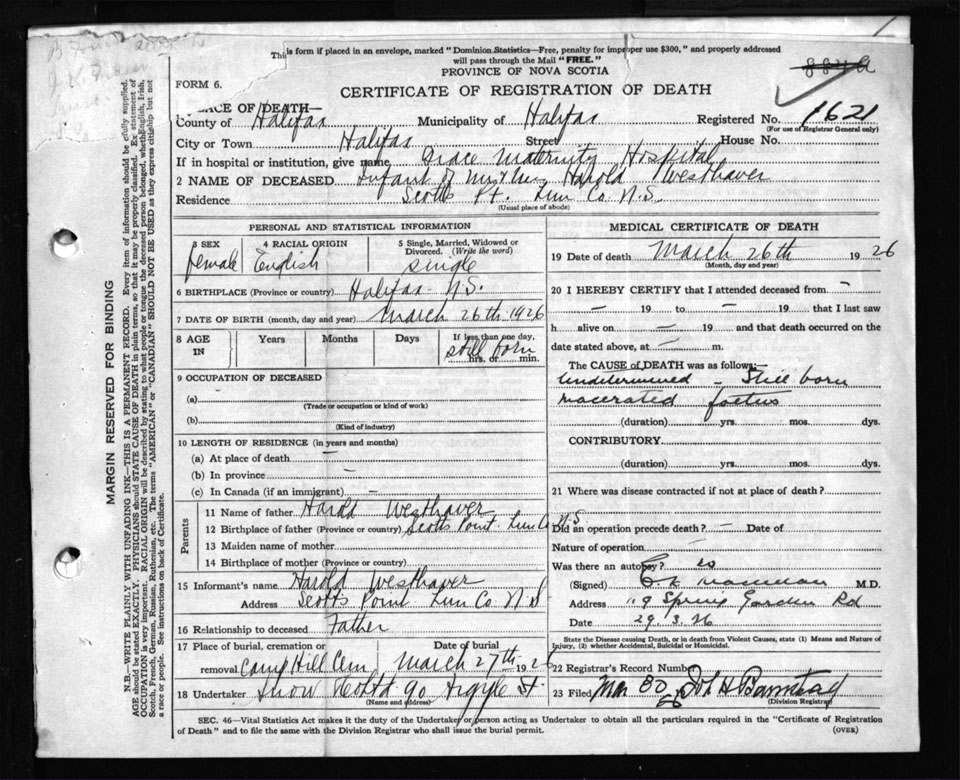 This is form if placed in an envelope, marked "Dominion Statistics—Free, penalty for improper use $300," and properly addressed
will pass through the Mail "FREE."
PROVINCE OF NOVA SCOTIA
FORM 6.
CERTIFICATE OF REGISTRATION OF DEATH
PLACE OF DEATH—
County of Halifax Municipality of Halifax Registered No. 1621
(For use of Registrar General only)
City or Town Halifax Street House No.
If in hospital or institution, give name Grace Maternity Hospital
2 NAME OF DECEASED Infant of Mr & Mrs Harold Westhaver
Residence Scotts Pt. Lun Co. N.S.
(Usual place of abode)
PERSONAL AND STATISTICAL INFORMATION
3 SEX female
4 RACIAL ORIGIN English
5 Single, Married, Widowed or Divorced. (Write the word) single
6 BIRTHPLACE (Province or country) Halifax N.S.
7 DATE OF BIRTH (month, day and year) March 26th 1926
8 AGE IN Years Months Days If less than one day hrs. or min. still born
9 OCCUPATION OF DECEASED
(a)
(Trade or occupation or kind of work)
(b)
(Kind of industry)
10 LENGTH OF RESIDENCE (in years and months)
(a) At place of death —
(b) In province —
(c) In Canada (if an immigrant) —
Parents
11 Name of father Harold Westhaver
12 Birthplace of father (Province or country) Scotts Point Lun Co N.S
13 Maiden name of mother
14 Birthplace of mother (Province or country)
15 Informant's name Harold Westhaver
Address Scotts Point Lun Co N S
16 Relationship to deceased Father
17 Place of burial, cremation or removal Camp Hill Cem Date of burial March 27th 1926
18 Undertaker Snow & Co Ltd 90 Argyle St
(Name and address)
MEDICAL CERTIFICATE OF DEATH
19 Date of death March 26th 1926
(Month, day and year)
20 I HEREBY CERTIFY that I attended deceased from —
— 19 to — 19 that I last saw
h alive on — 19 and that death occurred on the
date stated above, at — m.
The CAUSE of DEATH was as follows:—
Undetermined – Still born
macerated foetus
(duration) yrs. mos. dys.
CONTRIBUTORY
(duration) yrs. mos. dys.
21 Where was disease contracted if not at place of death?
Did an operation precede death? — Date of
Nature of operation
Was there an autopsy? yes
(Signed) M.D.
Address 119 Spring Garden Rd
Date 29.3.26
State the Disease causing Death, or in death from Violent Causes, state (1) Means and Nature of
Injury, (2) whether Accidental, Suicidal or Homicidal.
22 Registrar's Record Number
23 Filed Mar 30 26 Jno H Barnstead
(Division Registrar)
SEC. 46—Vital Statistics Act makes it the duty of the Undertaker or person acting as Undertaker to obtain all the particulars required in the "Certificate of Registration
of Death" and to file the same with the Division Registrar who shall issue the burial permit.
(OVER)
MARGIN RESERVED FOR BINDING
N.B.—WRITE PLAINLY WITH UNFADING INK—THIS IS A PERMANENT RECORD. Every item of information should be carefully supplied.
AGE should be stated EXACTLY. PHYSICIANS should STATE CAUSE OF DEATH in plain terms, so that it may be properly classified. Ex statement of
OCCUPATION is very important. RACIAL ORIGIN will be described by stating to what people or tongue the deceased person belonged, whether English, Irish,
Scotch, French, German, Russian, Ruthenian, etc. The terms "AMERICAN" or "CANADIAN" SHOULD NOT BE USED as they express citizenship but not
a race or people. See instructions on back of Certificate.